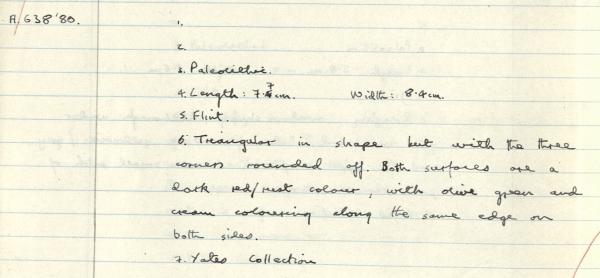 A.G38'80.
1.
2.
3. Paleolithic.
4. Length: 7.7cm. Width: 8.4cm.
5. Flint.
6. Triangular in shape but with the three
corners rounded off. Both surfaces are a
dark red/rust colour, with olive green and
cream colouring along the same edge on
both sides.
7. Yates Collection